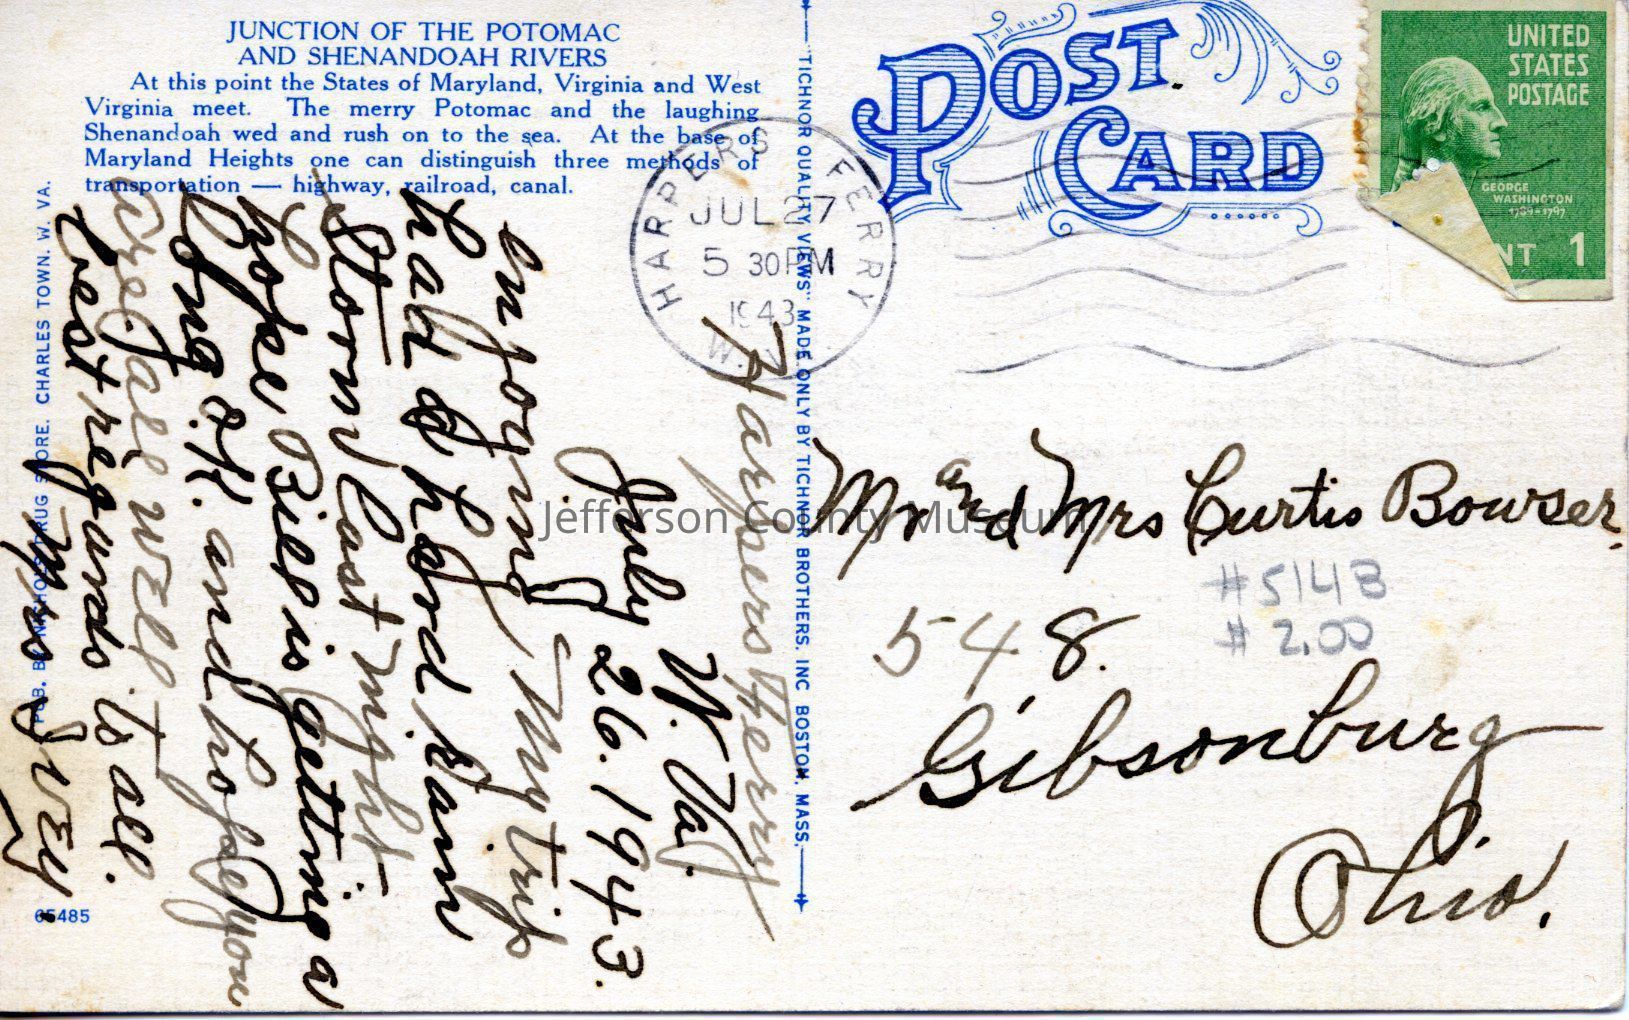 JUNCTION OF THE POTOMAC
AND SHENANDOAH RIVERS
At this point the States of Maryland, Virginia and West
Virginia meet. The merry Potomac and the laughing
Shenandoah wed and rush on to the sea. At the base of
Maryland Heights one can distinguish three methods of
transportation — highway, railroad, canal.
POST
CARD
UNITED
STATES
POSTAGE
GEORGE
WASHINGTON
1789-1797
NT 1
HARPERS FERRY
JUL 27
5 30 PM
1943
W.
Harpers Ferry
W. Va.
July 26. 1943.
enjoying My trip
had a hard Rain
Storm last night
hope Bill is getting a
long O.K. and hope you
are all well
Best regards to all.
Mrs Ivey
TICHNOR QUALITY VIEWS" MADE ONLY BY TICHNOR BROTHERS, INC BOSTON, MASS.
PUB. B DRUG STORE. CHARLES TOWN. W. VA.
65485
Mr and Mrs Curtis Bowser.
#514B
# 2.00
548.
Gibsonburg
Ohio.
Jefferson County Museum